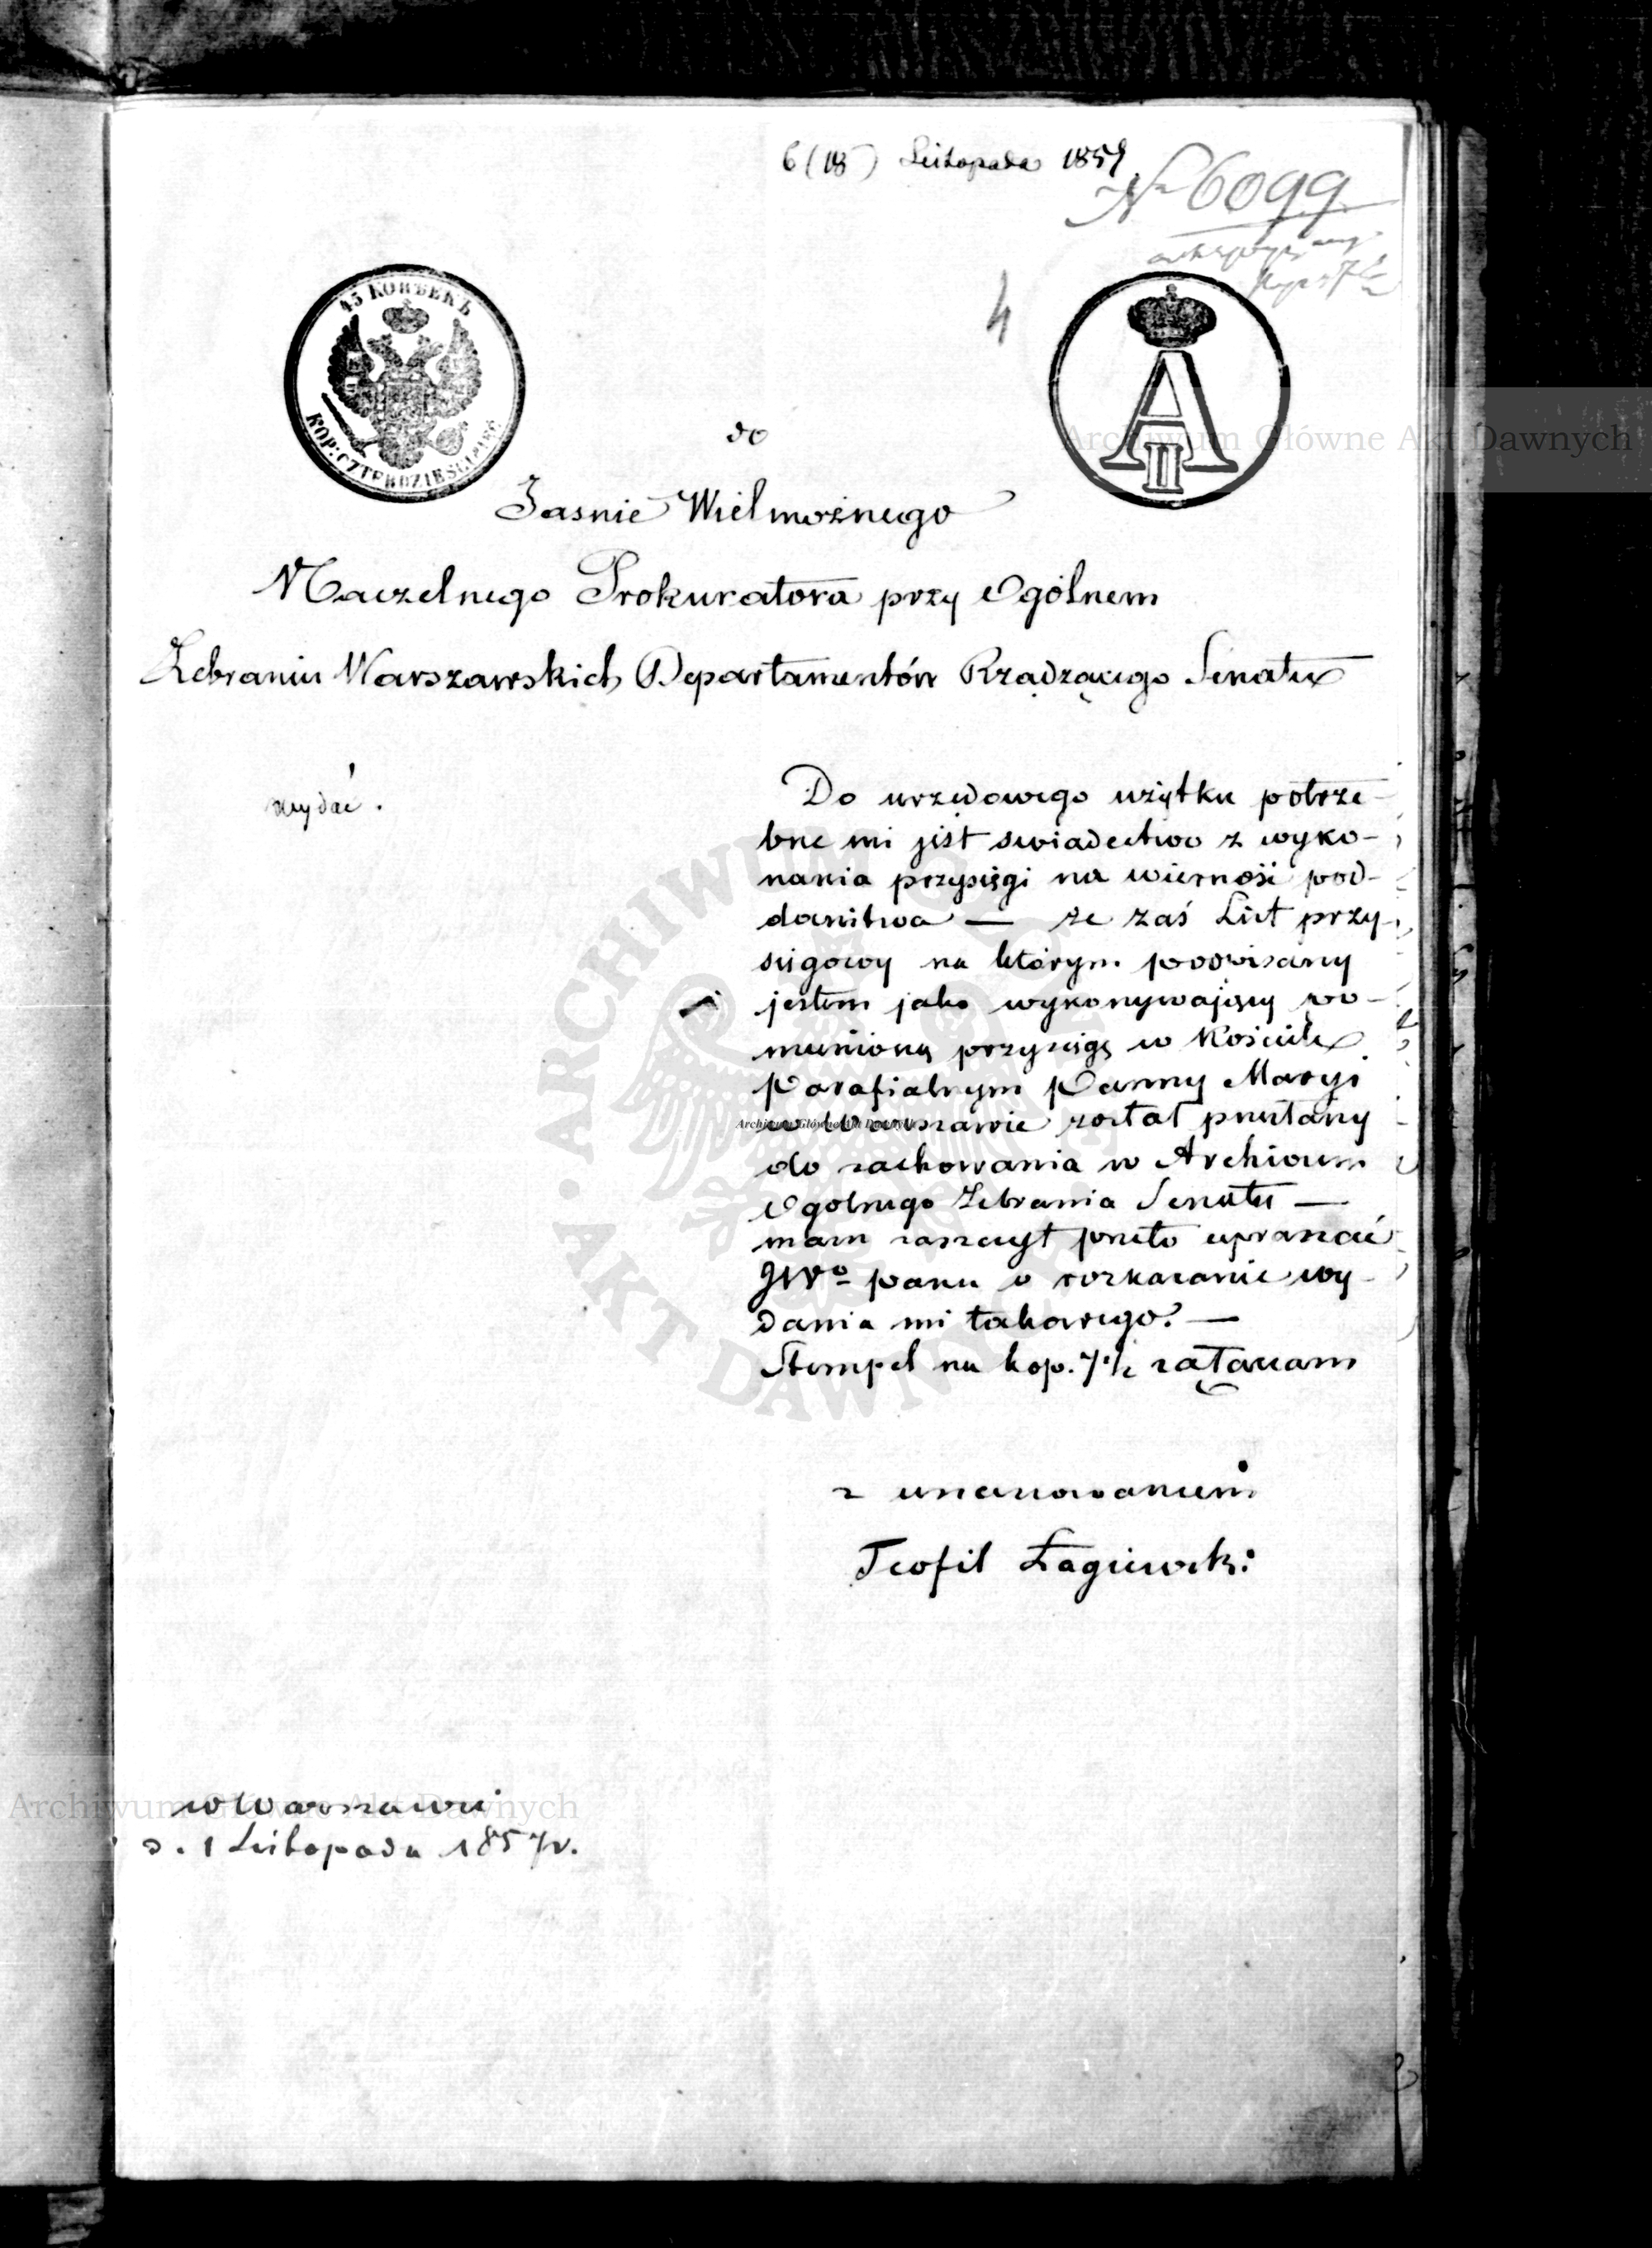 6 (18) Listopada 1857
№ 6099
4
45 КОПѢЕКЪ
KOP: CZTERDZIEŚCI PIĘĆ
A II
do
Jasnie Wielmożnego
Naczelnego Prokuratora przy Ogólnem
Zebraniu Warszawskich Departamentów Rządzącego Senatu
wydać.
Do urzędowego użytku potrze-
bne mi jest swiadectwo z wyko-
nania przysięgi na wierność pod-
daństwa — że zaś List przy-
sięgowy na którym podpisany
jestem jako wykonywający po-
mienioną przysięgę w Kościele
Parafialnym Panny Maryi
w Warszawie został przesłany
do zachowania w Archiwum
Ogolnego Zebrania Senatu —
mam zaszczyt przeto upraszać
JWo panu o rozkazanie wy-
dania mi takowego. —
Stempel na kop. 7 1/2 załączam
z uszanowaniem
Teofil Łagiewski
w Warszawie
d. 1 Listopada 1857 r.
Archiwum Główne Akt Dawnych
Archiwum Główne Akt Dawnych
Archiwum Główne Akt Dawnych
ARCHIWUM GŁÓWNE AKT DAWNYCH